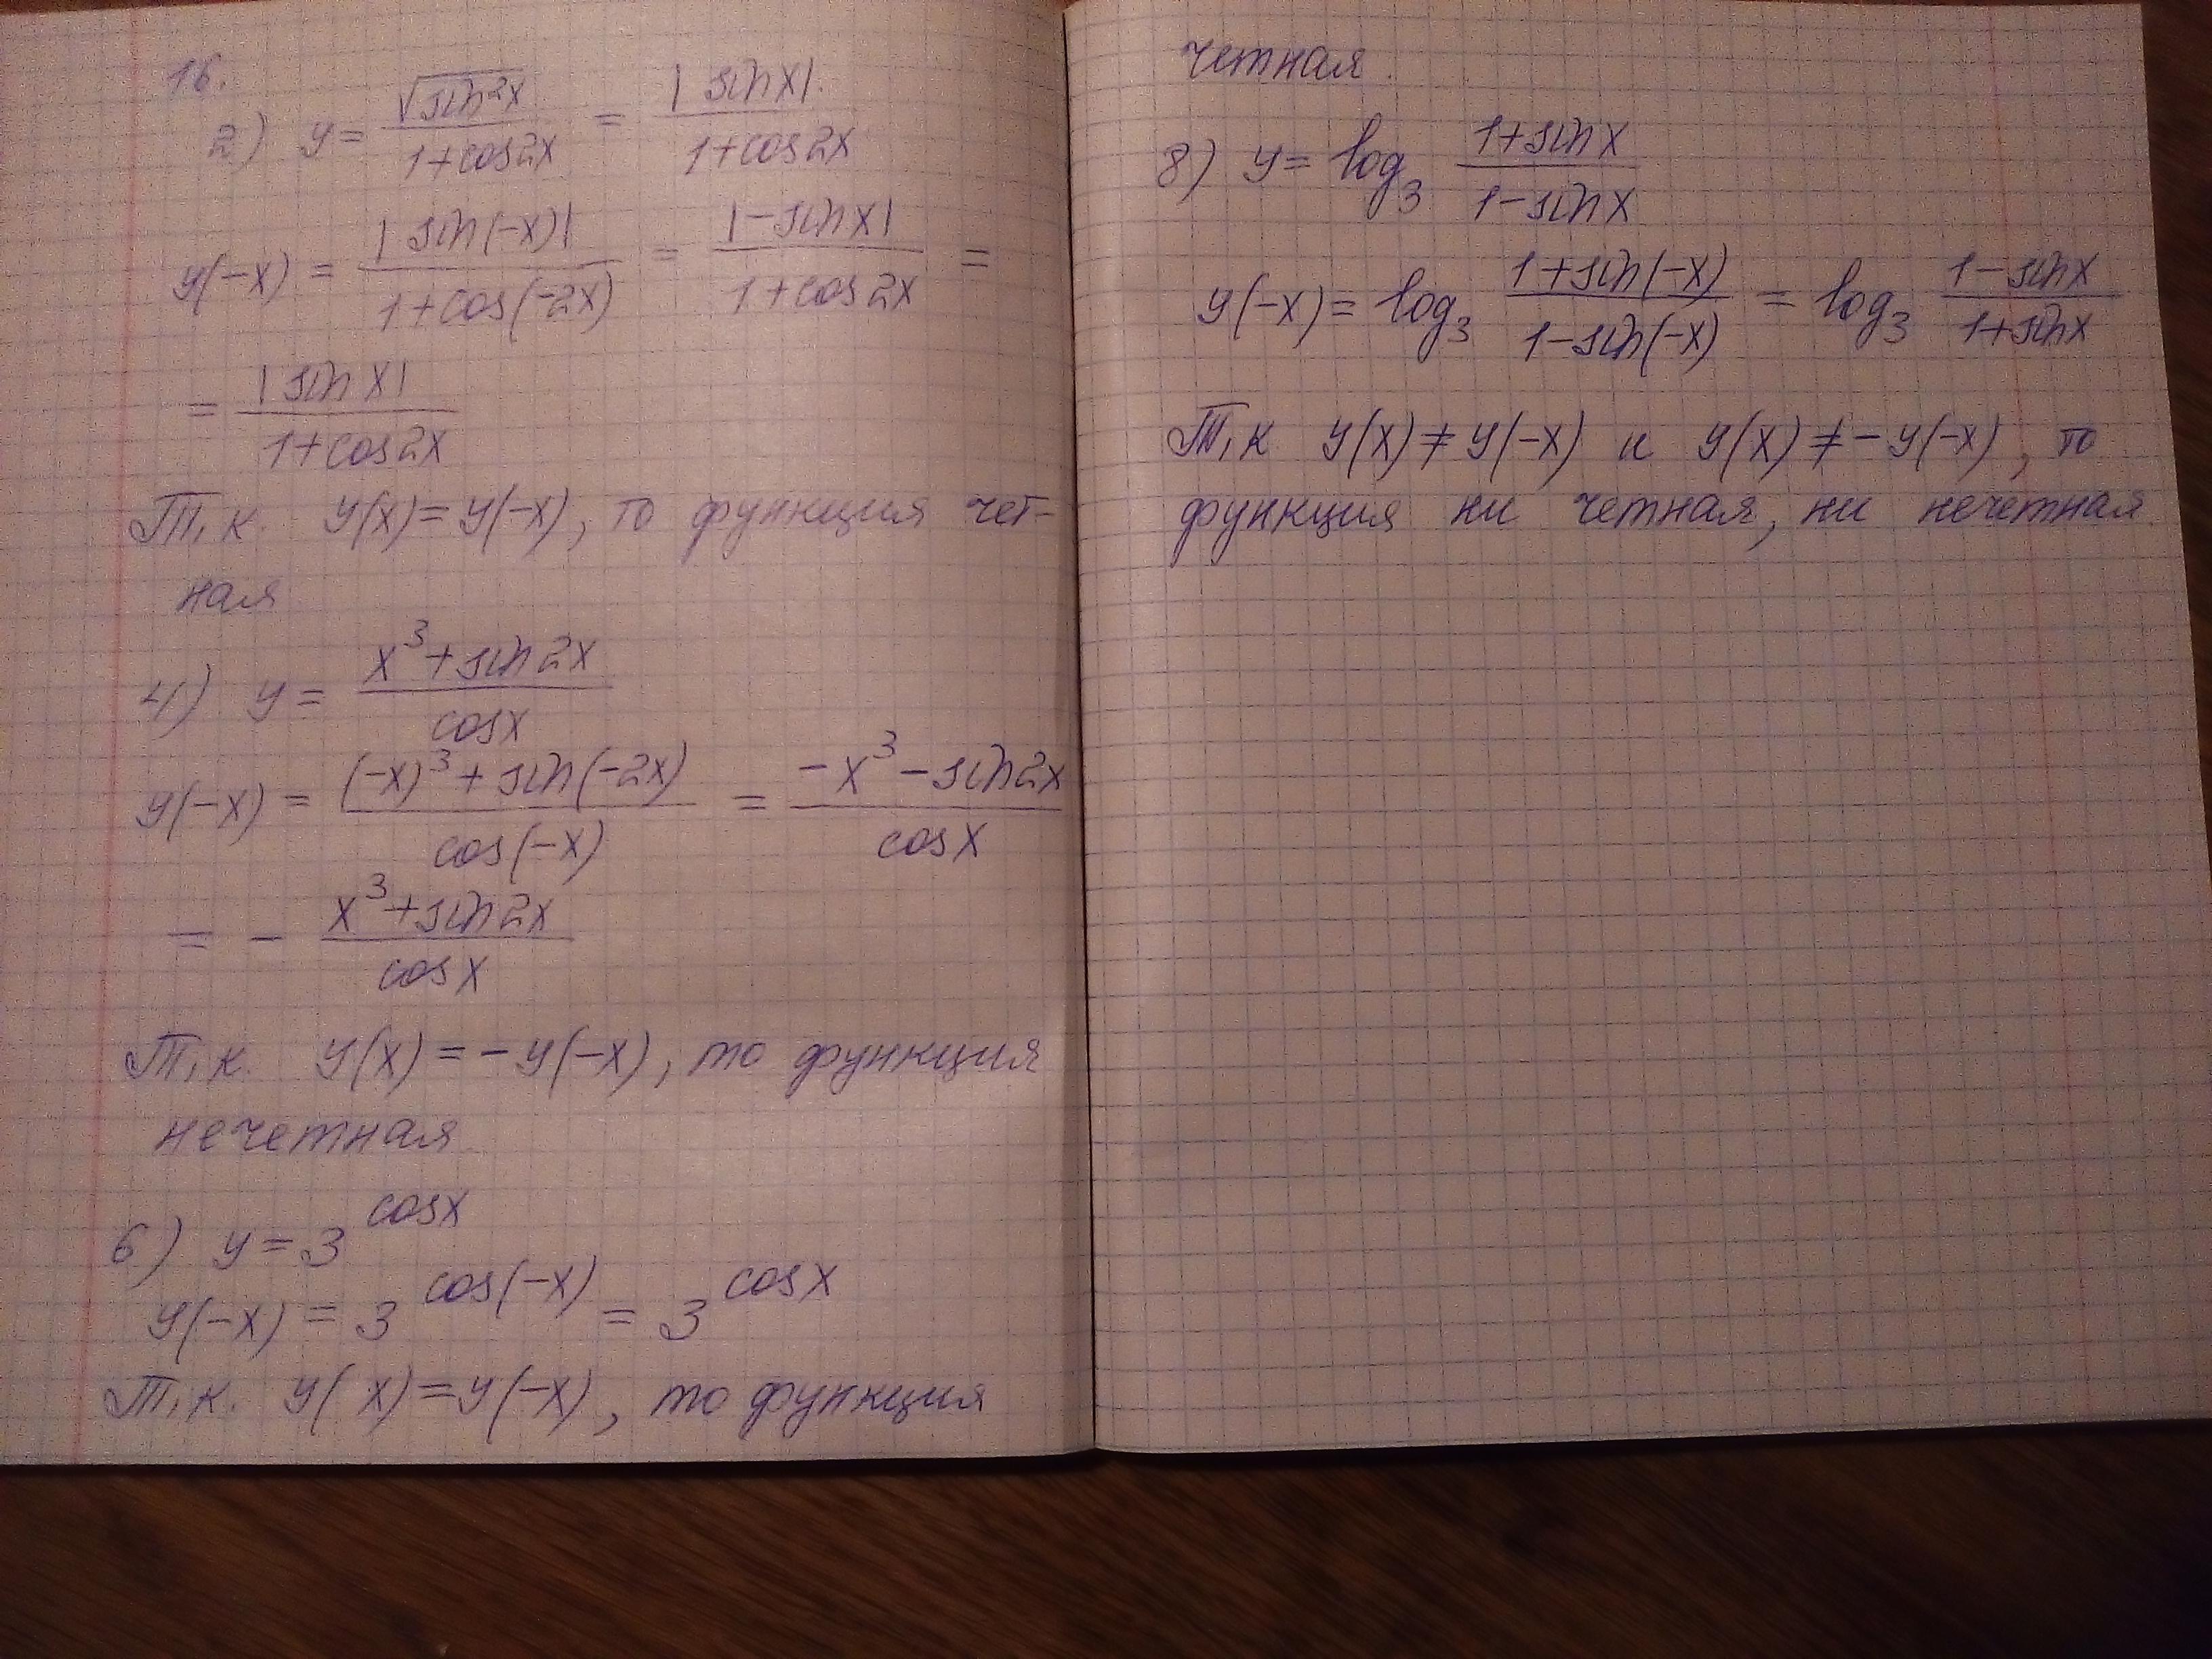 16.
2) y = √sin²x / 1+cos2x = |sinx| / 1+cos2x
y(-x) = |sin(-x)| / 1+cos(-2x) = |-sinx| / 1+cos2x =
= |sinx| / 1+cos2x
Т.к. y(x)=y(-x), то функция чет-
ная
4) y = x³+sin2x / cosx
y(-x) = (-x)³+sin(-2x) / cos(-x) = -x³-sin2x / cosx
= - x³+sin2x / cosx
Т.к. y(x)=-y(-x), то функция
нечетная
6) y=3^cosx
y(-x) = 3^cos(-x) = 3^cosx
Т.к. y(x)=y(-x), то функция
четная.
8) y= log₃ 1+sinx / 1-sinx
y(-x)= log₃ 1+sin(-x) / 1-sin(-x) = log₃ 1-sinx / 1+sinx
Т.к y(x)≠y(-x) и y(x)≠-y(-x), то
функция ни четная, ни нечетная